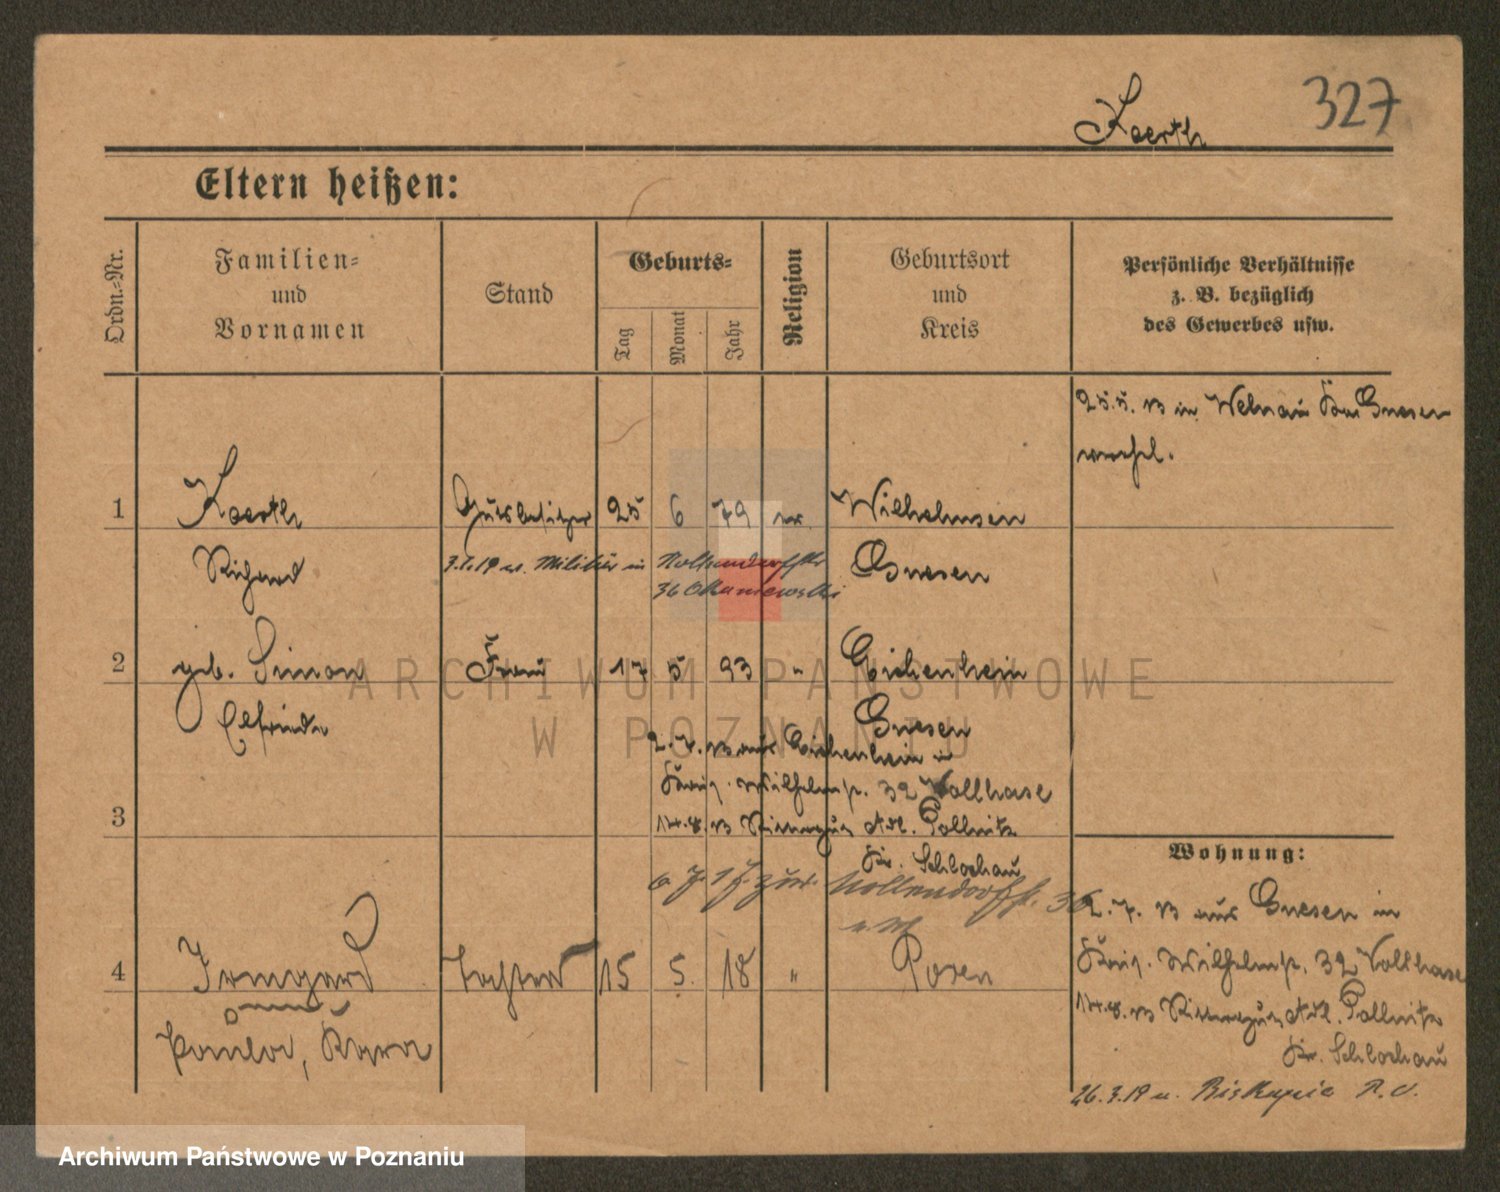 327
Koerth
Eltern heißen:
Ordn.-Nr.
Familien-
und
Vornamen
Stand
Geburts-
Tag
Monat
Jahr
Religion
Geburtsort
und
Kreis
Persönliche Verhältnisse
z. B. bezüglich
des Gewerbes usw.
25.5. 13 in Welnau Krs Gnesen
1 Koerth Gutsbesitzer 25 6 79 ev. Wilhelmsen
Richard Gnesen
3.1.19 u. Militär in Nollendorffstr
36
2 geb. Simon Frau 17 5 93 " Eichenhein
Elfriede Gnesen
2.7. 13 aus Eichenhein in
König. Wilhelmstr. 32 Vollhase
3 14.8. 13 Rittergut Adl. Pollnitz
Kr. Schlochau
Nollendorffstr. 36
Wohnung:
2.7. 13 aus Gnesen in
König. Wilhelmstr. 32 Vollhase
4 Irmgard Tochter 15 5. 18 " Posen
14.8. 13 Rittergut Adl. Pollnitz
Paula,
Kr. Schlochau
26.3.19 u. Biskupice
ARCHIWUM PAŃSTWOWE
W POZNANIU
Archiwum Państwowe w Poznaniu